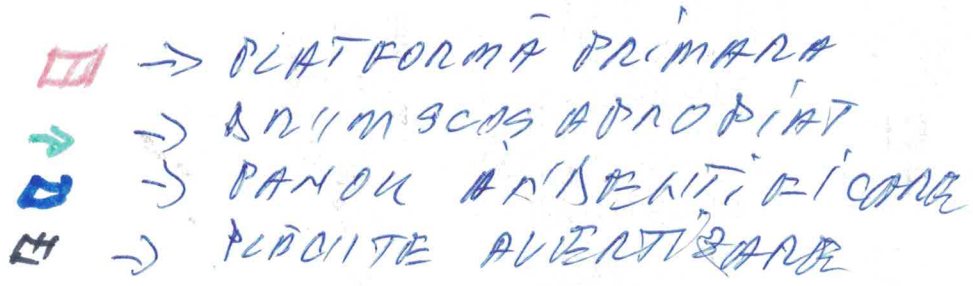 → PLATFORMĂ PRIMARA
→ DRUM SCOS APROPIAT
→ PANOU IDENTIFICARE
→ PLĂCUTE AVERTIZARE